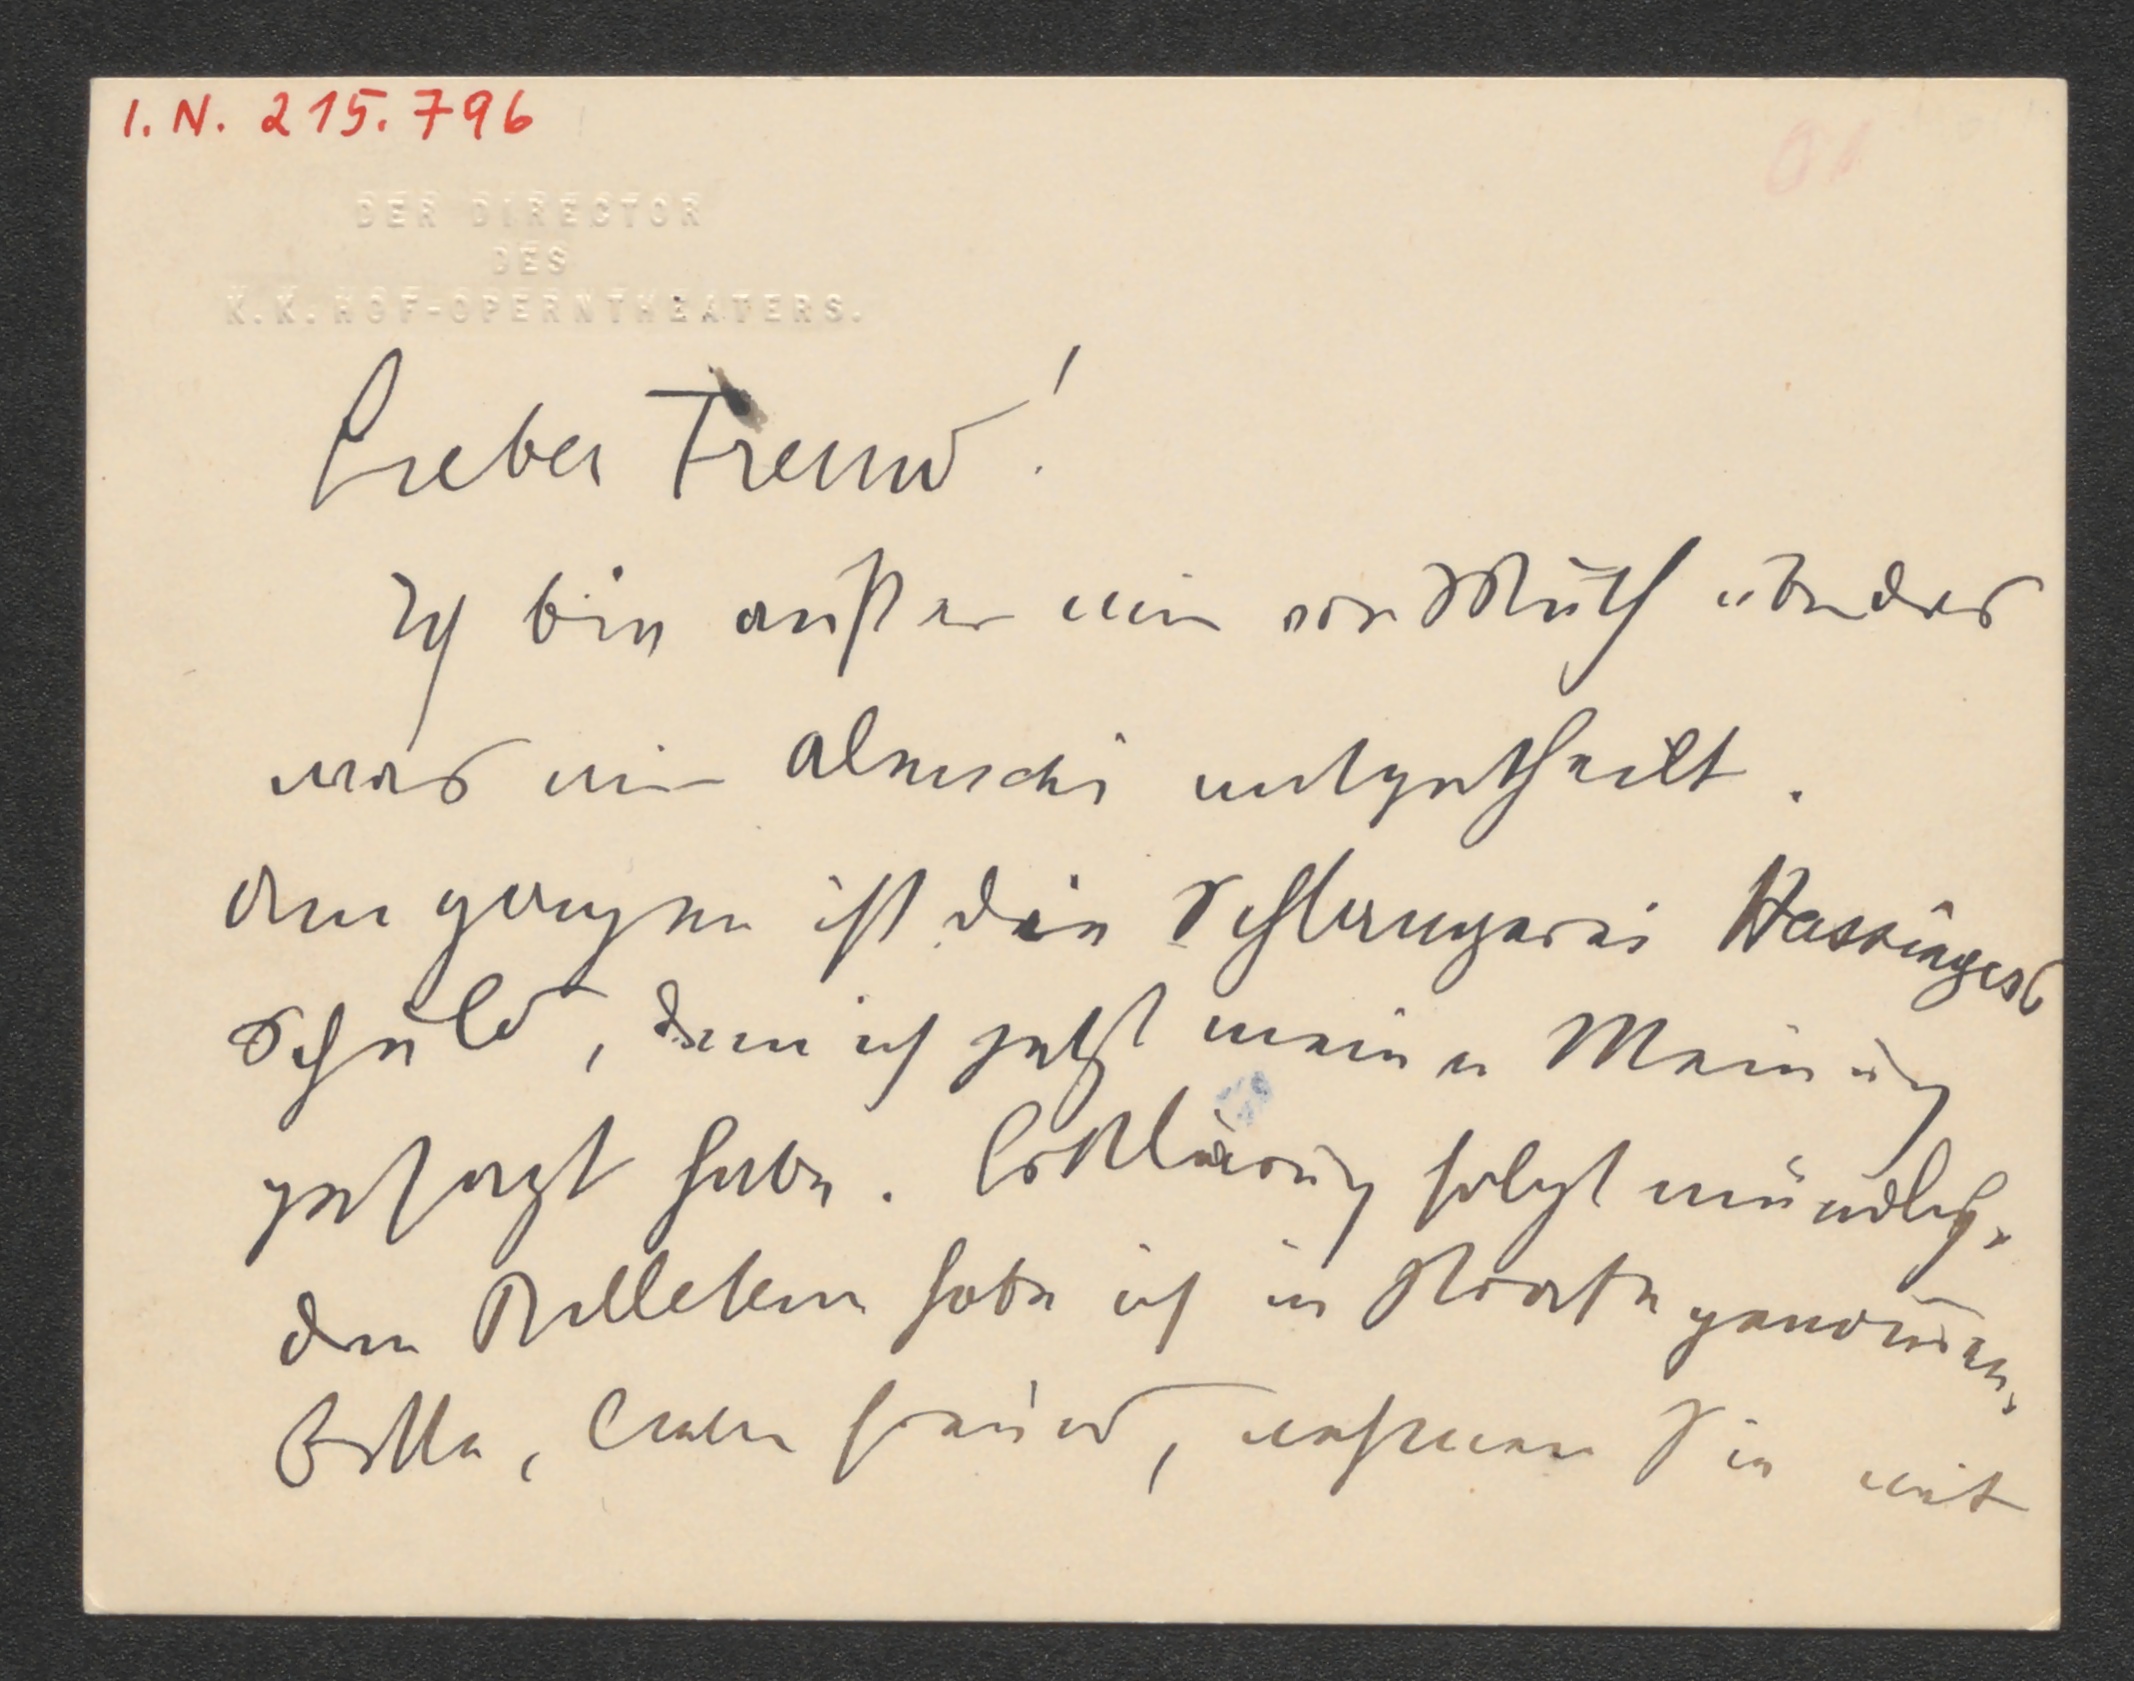 I.N. 215.796
DER DIRECTOR
DES
K.K. HOF-OPERNTHEATERS.
Lieber Freund!
Ich bin außer mir vor Wuth über das
was mir Alruschi mitgetheilt.
An ganzen ist die Schlamperei Hassingers
Schuld, dem ich jetzt meine Meinung
gesagt habe. Erklärung folgt mündlich.
Den habe ich in Strafe genommen.
Bitte, lieber Freund, nehmen Sie mit